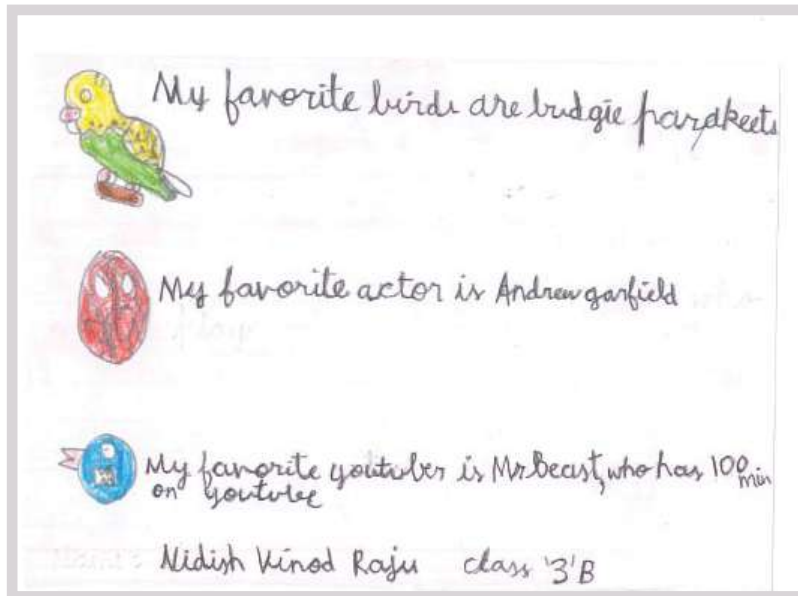 My favorite birds are budgie parakeets
My favorite actor is Andrew garfield
My favorite youtuber is Mr.Beast, who has 100 min
on youtube
Nidish Vinod Raju class '3'B